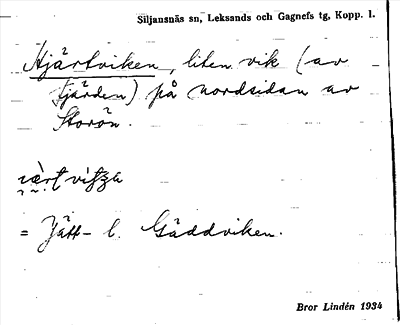 Siljansnäs sn, Leksands och Gagnefs tg, Kopp. l.
Hjärtviken, liten vik (av
fjärden) på nordsidan av
Storön.
= Jätt- l. Gäddviken.
Bror Lindén 1934